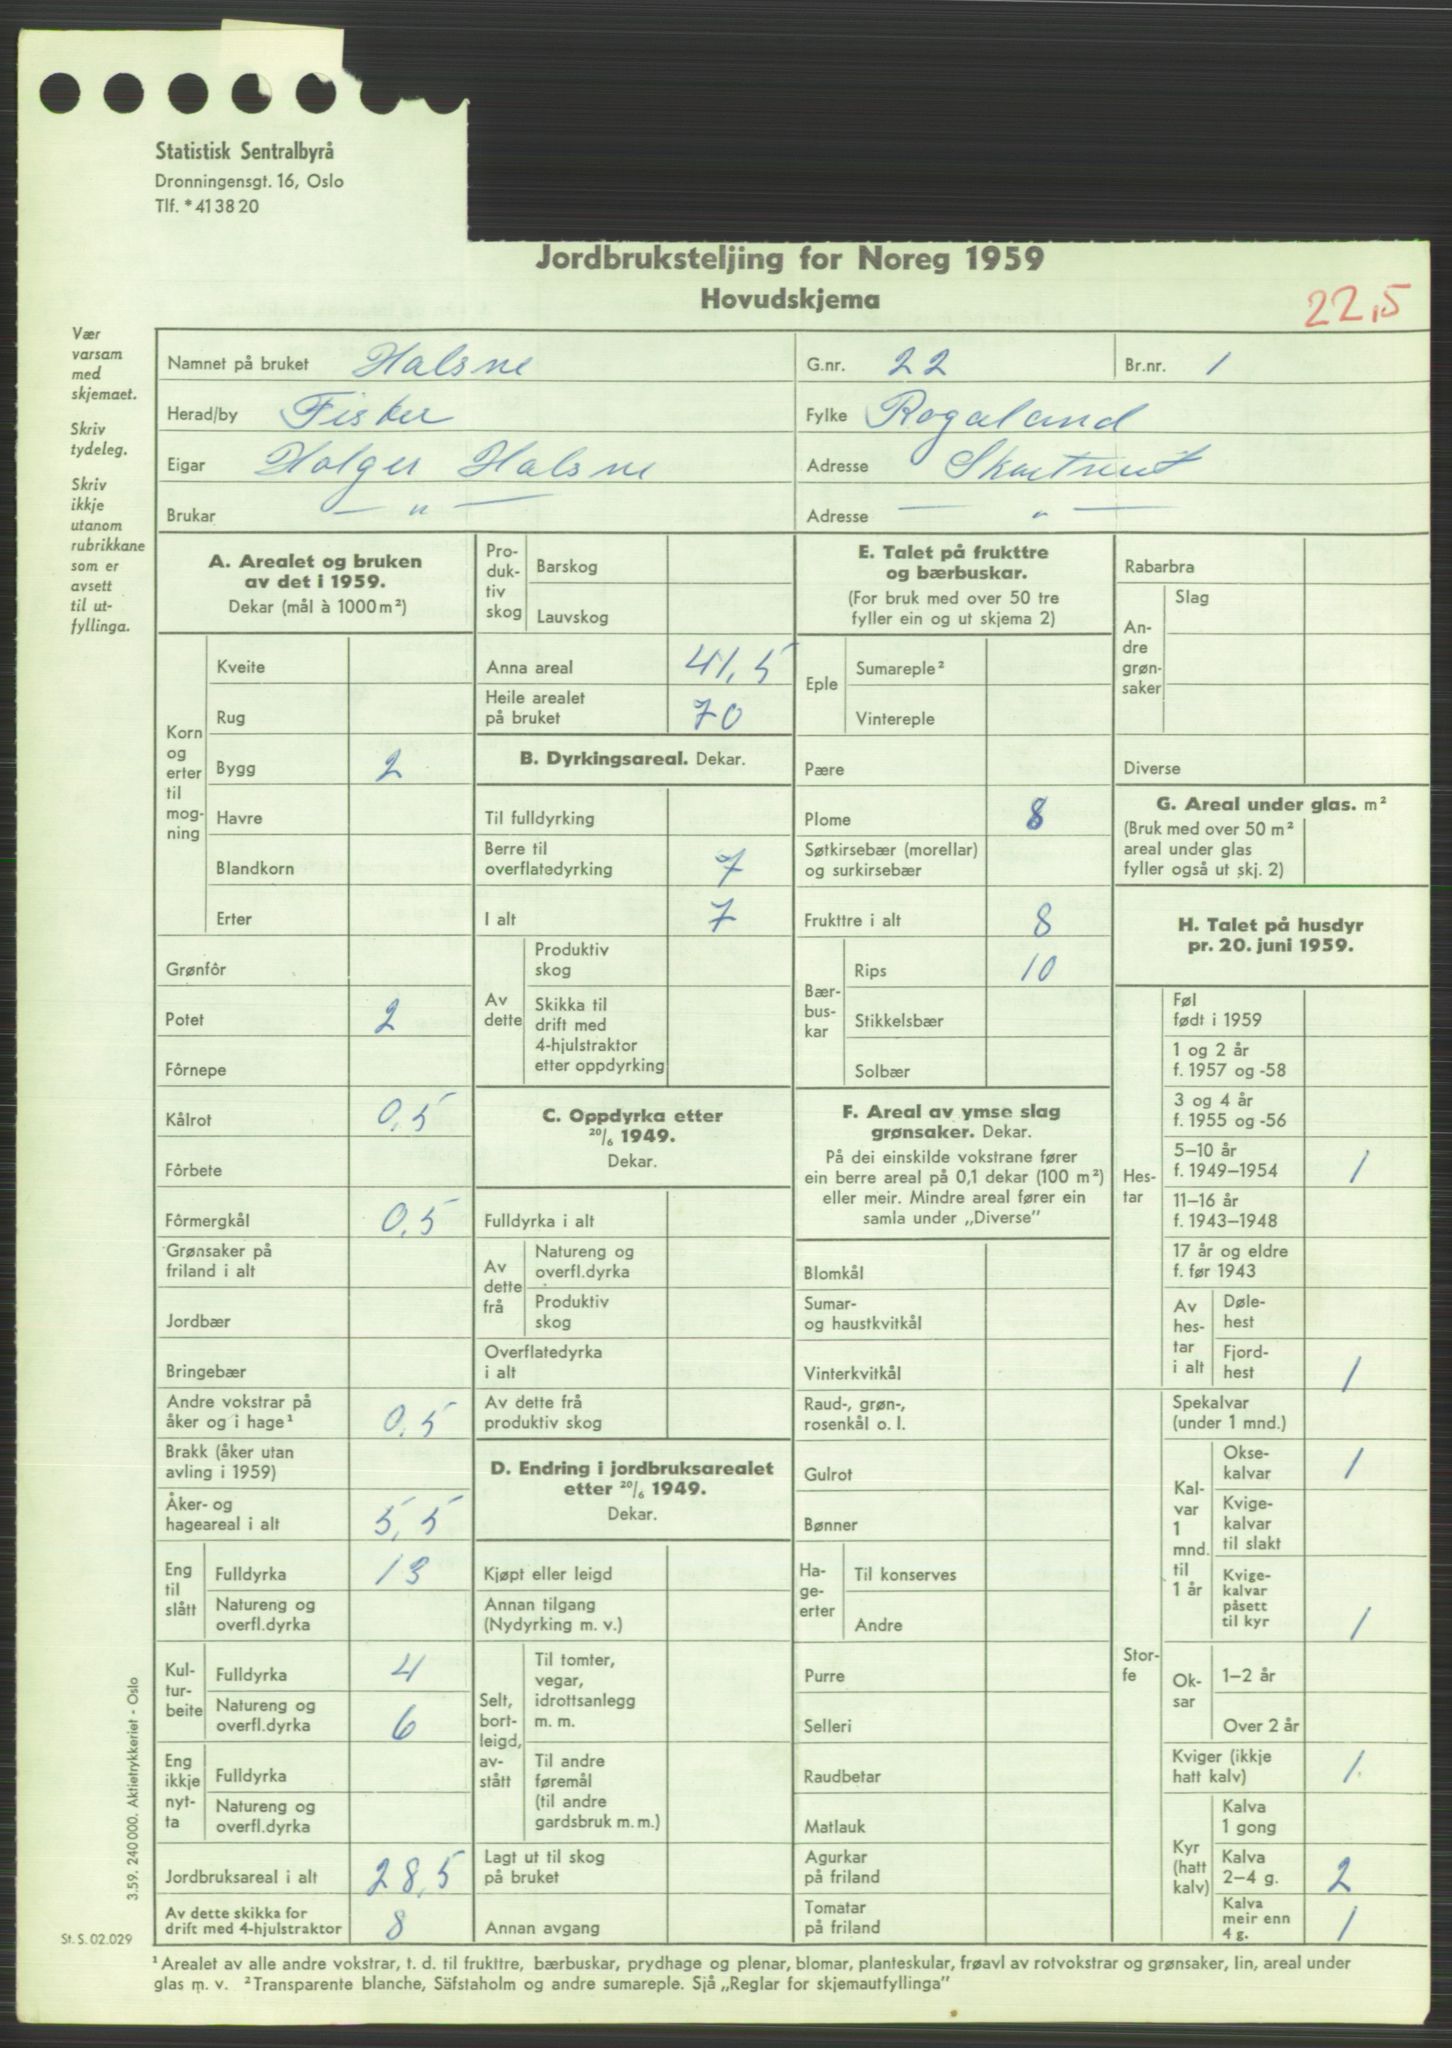 Statistisk Sentralbyrå
Dronningensgt. 16, Oslo
Tlf. *41 38 20
Jordbruksteljing for Noreg 1959
Hovudskjema
22,5
Vær
varsam
med
skjemaet.
Skriv
tydeleg.
Skriv
ikkje
utanom
rubrikkane
som er
avsett
til ut-
fyllinga.
Namnet på bruket Halsne G.nr. 22 Br.nr. 1
Herad/by Fister Fylke Rogaland
Eigar Holger Halsne Adresse
Brukar — „ — Adresse — „ —
A. Arealet og bruken
av det i 1959.
Dekar (mål à 1000 m²)
Korn
og
erter
til
mog-
ning
Kveite
Rug
Bygg 2
Havre
Blandkorn
Erter
Grønfôr
Potet 2
Fôrnepe
Kålrot 0,5
Fôrbete
Fôrmergkål 0,5
Grønsaker på
friland i alt
Jordbær
Bringebær
Andre vokstrar på
åker og i hage¹ 0,5
Brakk (åker utan
avling i 1959)
Åker- og
hageareal i alt 5,5
Eng
til
slått
Fulldyrka 13
Natureng og
overfl.dyrka
Kul-
tur-
beite
Fulldyrka 4
Natureng og
overfl.dyrka 6
Eng
ikkje
nyt-
ta
Fulldyrka
Natureng og
overfl.dyrka
Jordbruksareal i alt 28,5
Av dette skikka for
drift med 4-hjulstraktor 8
Pro-
duk-
tiv
skog
Barskog
Lauvskog
Anna areal 41,5
Heile arealet
på bruket 70
B. Dyrkingsareal. Dekar.
Til fulldyrking
Berre til
overflatedyrking 7
I alt 7
Av
dette
Produktiv
skog
Skikka til
drift med
4-hjulstraktor
etter oppdyrking
C. Oppdyrka etter
20/6 1949.
Dekar.
Fulldyrka i alt
Av
dette
frå
Natureng og
overfl.dyrka
Produktiv
skog
Overflatedyrka
i alt
Av dette frå
produktiv skog
D. Endring i jordbruksarealet
etter 20/6 1949.
Dekar.
Kjøpt eller leigd
Annan tilgang
(Nydyrking m. v.)
Selt,
bort-
leigd,
av-
stått
Til tomter,
vegar,
idrottsanlegg
m. m.
Til andre
føremål
(til andre
gardsbruk m. m.)
Lagt ut til skog
på bruket
Annan avgang
E. Talet på frukttre
og bærbuskar.
(For bruk med over 50 tre
fyller ein og ut skjema 2)
Eple
Sumareple²
Vintereple
Pære
Plome 8
Søtkirsebær (morellar)
og surkirsebær
Frukttre i alt 8
Bær-
bus-
kar
Rips 10
Stikkelsbær
Solbær
F. Areal av ymse slag
grønsaker. Dekar.
På dei einskilde vokstrane fører
ein berre areal på 0,1 dekar (100 m²)
eller meir. Mindre areal fører ein
samla under „Diverse”
Blomkål
Sumar-
og haustkvitkål
Vinterkvitkål
Raud-, grøn-,
rosenkål o. l.
Gulrot
Bønner
Ha-
ge-
erter
Til konserves
Andre
Purre
Selleri
Raudbetar
Matlauk
Agurkar
på friland
Tomatar
på friland
Rabarbra
An-
dre
grøn-
saker
Slag
Diverse
G. Areal under glas. m²
(Bruk med over 50 m²
areal under glas
fyller også ut skj. 2)
H. Talet på husdyr
pr. 20. juni 1959.
Hes-
tar
Føl
født i 1959
1 og 2 år
f. 1957 og -58
3 og 4 år
f. 1955 og -56
5–10 år
f. 1949–1954 1
11–16 år
f. 1943–1948
17 år og eldre
f. før 1943
Av
hes-
tar
i alt
Døle-
hest
Fjord-
hest 1
Stor-
fe
Spekalvar
(under 1 mnd.)
Kal-
var
1
mnd.
til
1 år
Okse-
kalvar 1
Kvige-
kalvar
til slakt
Kvige-
kalvar
påsett
til kyr 1
Ok-
sar
1–2 år
Over 2 år
Kviger (ikkje
hatt kalv) 1
Kyr
(hatt
kalv)
Kalva
1 gong
Kalva
2–4 g. 2
Kalva
meir enn
4 g. 1
3.59. 240 000. Aktietrykkeriet - Oslo
St. S. 02.029
¹ Arealet av alle andre vokstrar, t. d. til frukttre, bærbuskar, prydhage og plenar, blomar, planteskular, frøavl av rotvokstrar og grønsaker, lin, areal under
glas m. v. ² Transparente blanche, Säfstaholm og andre sumareple. Sjå „Reglar for skjemautfyllinga”